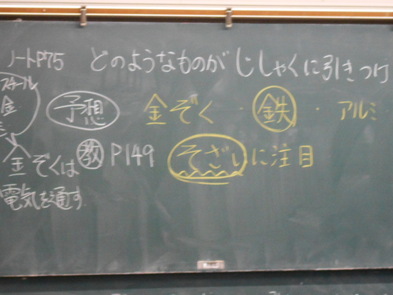 ノートP75 どのようなものがじしゃくに引きつけ
予想 金ぞく・鉄・アルミ
金ぞくは 教P149 そざいに注目
電気を通す